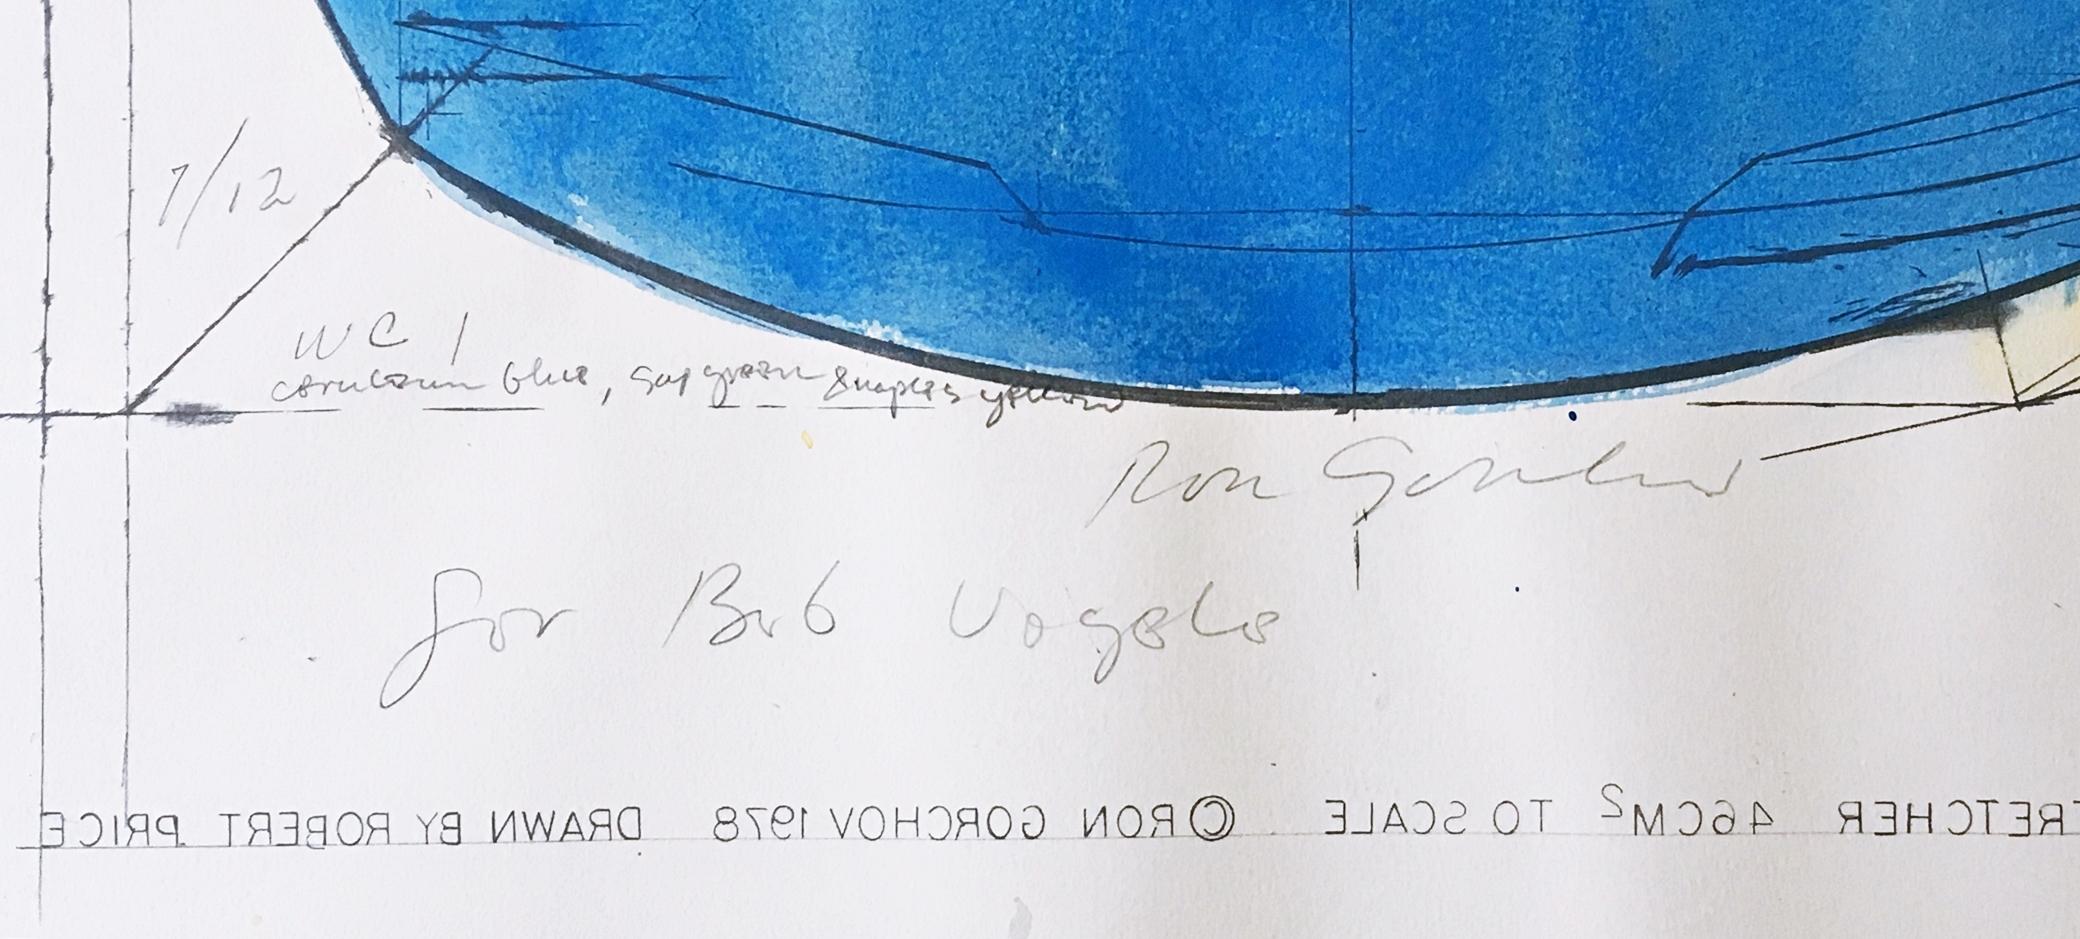 1/12
WC 1
cerulean blue, sap green & naples yellow
Ron Gorchov
for Bob Vogele
RETCHER 46CM² TO SCALE ©RON GORCHOV 1978 DRAWN BY ROBERT PRICE